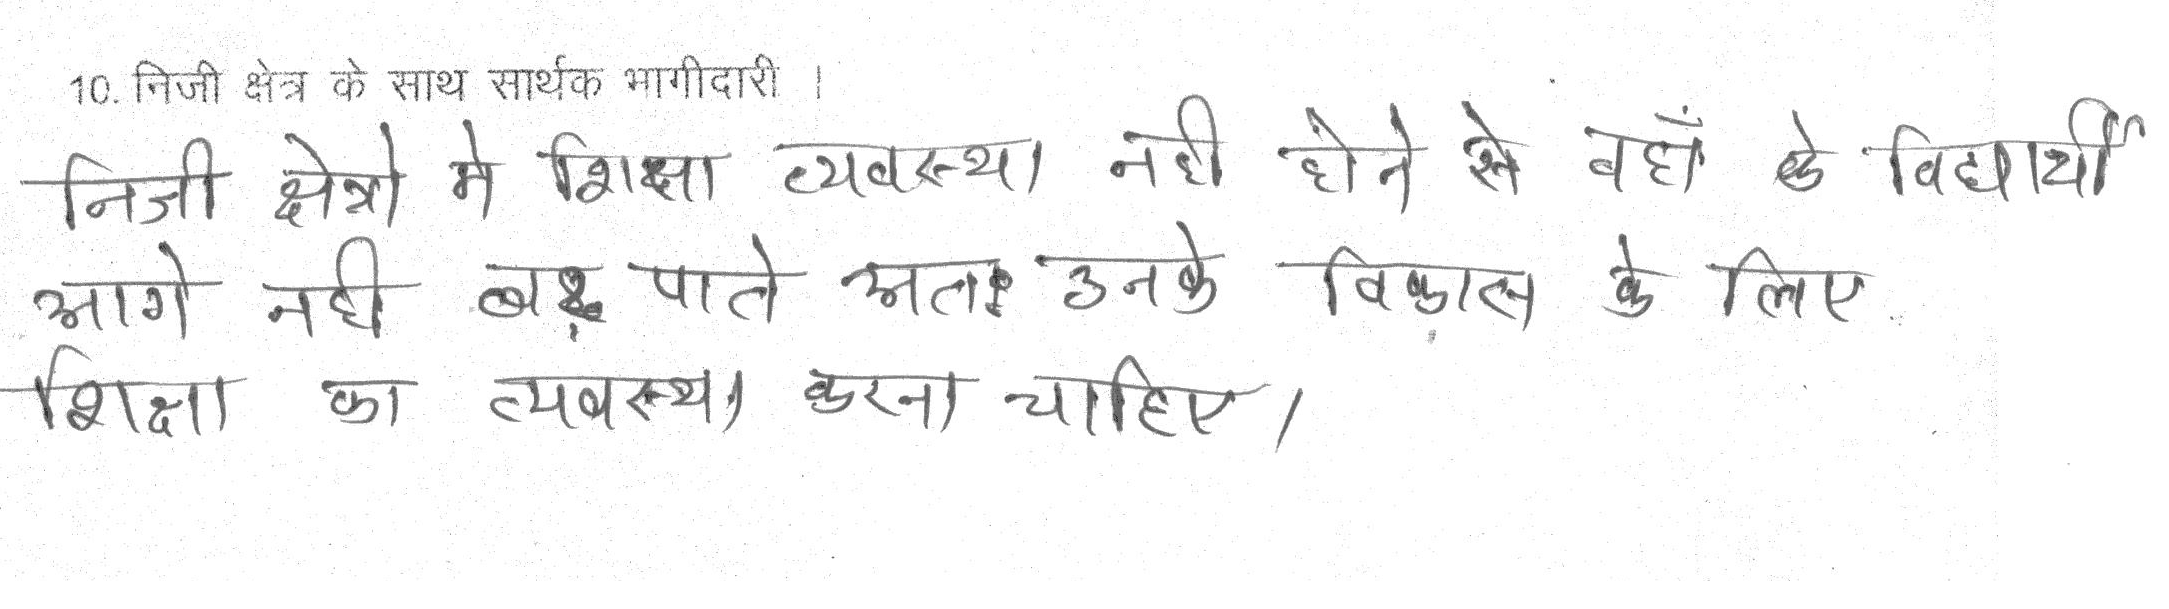 10. निजी क्षेत्र के साथ सार्थक भागीदारी ।
निजी क्षेत्रो मे शिक्षा व्यवस्था नही होने से वहाँ के विद्यार्थी
आगे नही बढ़ पाते अतः उनके विकास के लिए
शिक्षा का व्यवस्था करना चाहिए ।